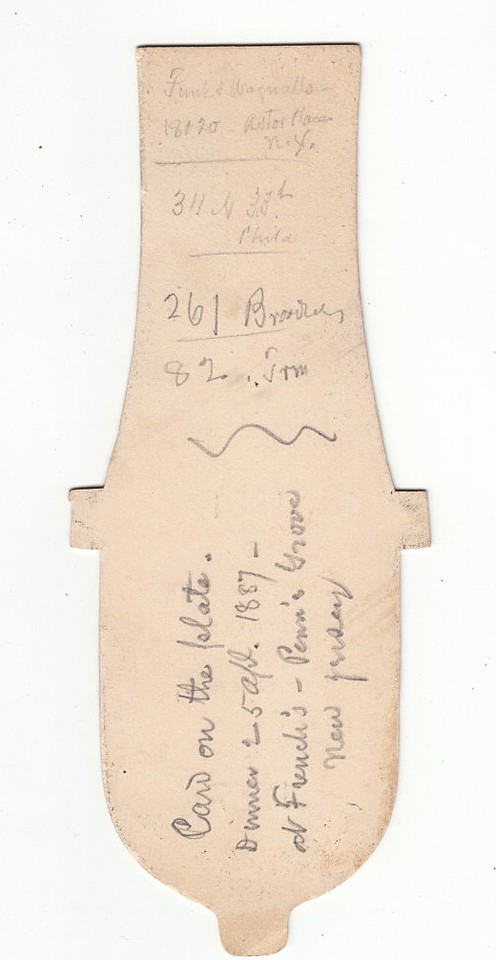 Funk & Wagnalls -
18 & 20 Astor Place
N.Y.
34 N 33d
Phila
261 Broadway
82
Card on the plate.
Dinner 25 Apl. 1887 -
at French's - Penn's Grove
New Jersey